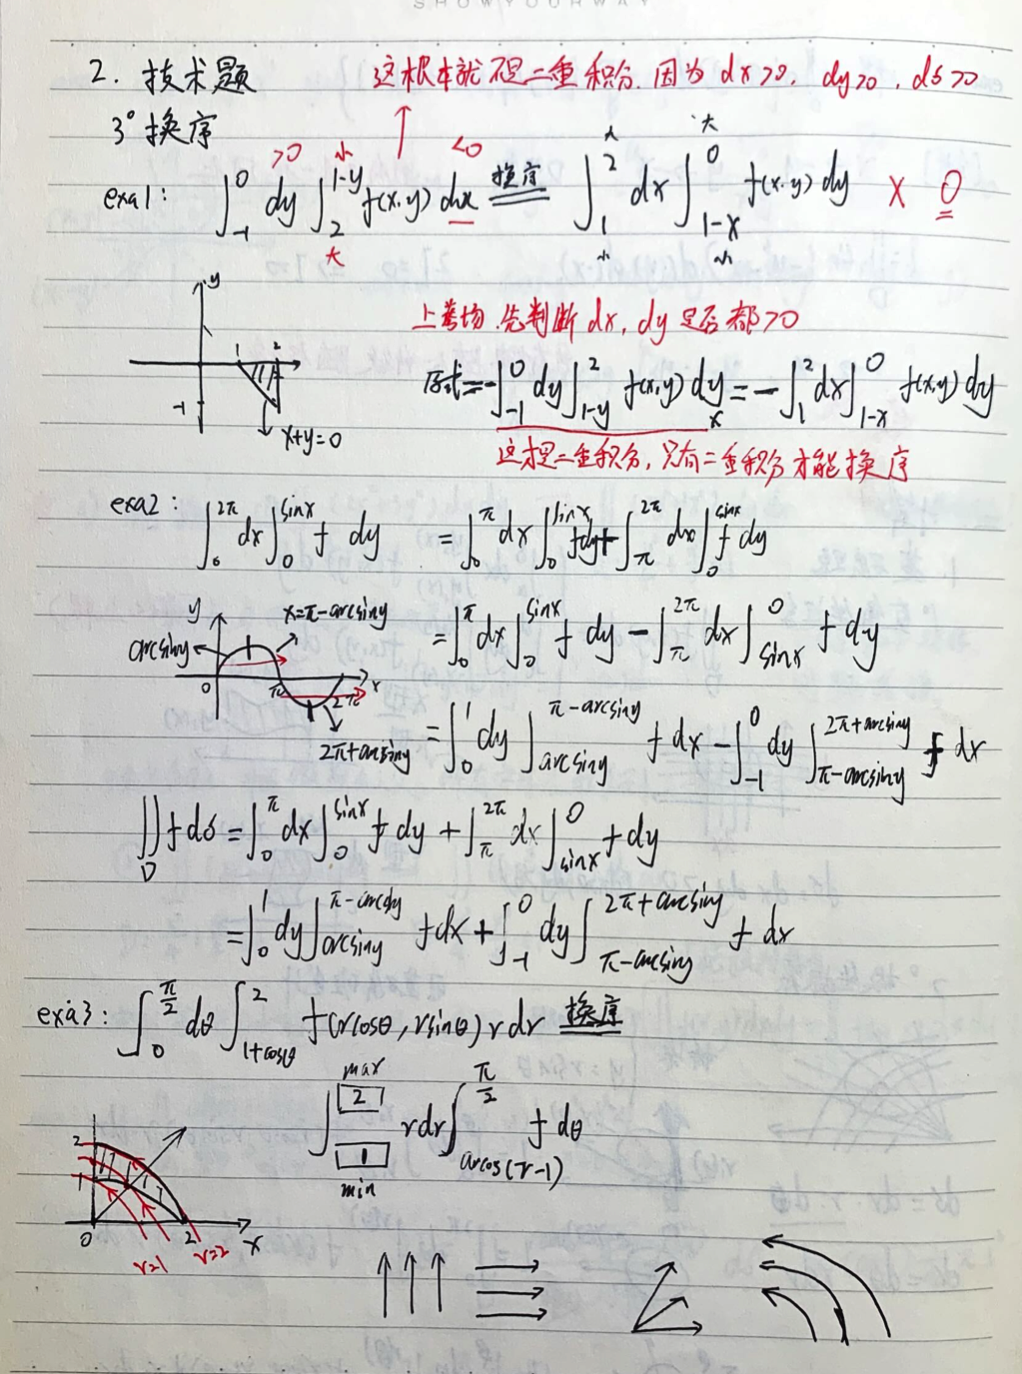 SHOWYOURWAY
2. 技术题 这根本就不是二重积分. 因为 dx>0, dy>0, dσ>0
3° 换序
exa1: ∫_{-1}^{0} dy ∫_{2}^{1-y} f(x,y) dx 换序 ∫_{1}^{2} dx ∫_{1-x}^{0} f(x,y) dy × 0
>0 小 <0 大 大
大 小 小
y
1 2
-1
x+y=0
上考场.先判断 dx, dy 是否都>0
原式=-∫_{-1}^{0} dy ∫_{1-y}^{2} f(x,y) dy = -∫_{1}^{2} dx ∫_{1-x}^{0} f(x,y) dy
x
这才是二重积分, 只有二重积分才能换序
exa2: ∫_{0}^{2π} dx ∫_{0}^{sinx} f dy = ∫_{0}^{π} dx ∫_{0}^{sinx} f dy + ∫_{π}^{2π} dx ∫_{0}^{sinx} f dy
y x=π-arcsiny
arcsiny
0 π 2π x
2π+arcsiny
= ∫_{0}^{π} dx ∫_{0}^{sinx} f dy - ∫_{π}^{2π} dx ∫_{sinx}^{0} f dy
= ∫_{0}^{1} dy ∫_{arcsiny}^{π-arcsiny} f dx - ∫_{-1}^{0} dy ∫_{π-arcsiny}^{2π+arcsiny} f dx
∬_D f dσ = ∫_{0}^{π} dx ∫_{0}^{sinx} f dy + ∫_{π}^{2π} dx ∫_{sinx}^{0} f dy
= ∫_{0}^{1} dy ∫_{arcsiny}^{π-arcsiny} f dx + ∫_{-1}^{0} dy ∫_{π-arcsiny}^{2π+arcsiny} f dx
exa3: ∫_{0}^{π/2} dθ ∫_{1+cosθ}^{2} f(rcosθ, rsinθ) r dr 换序
max
∫_{1}^{2} r dr ∫_{arccos(r-1)}^{π/2} f dθ
min
2
1
0 2 x
r=1 r=2